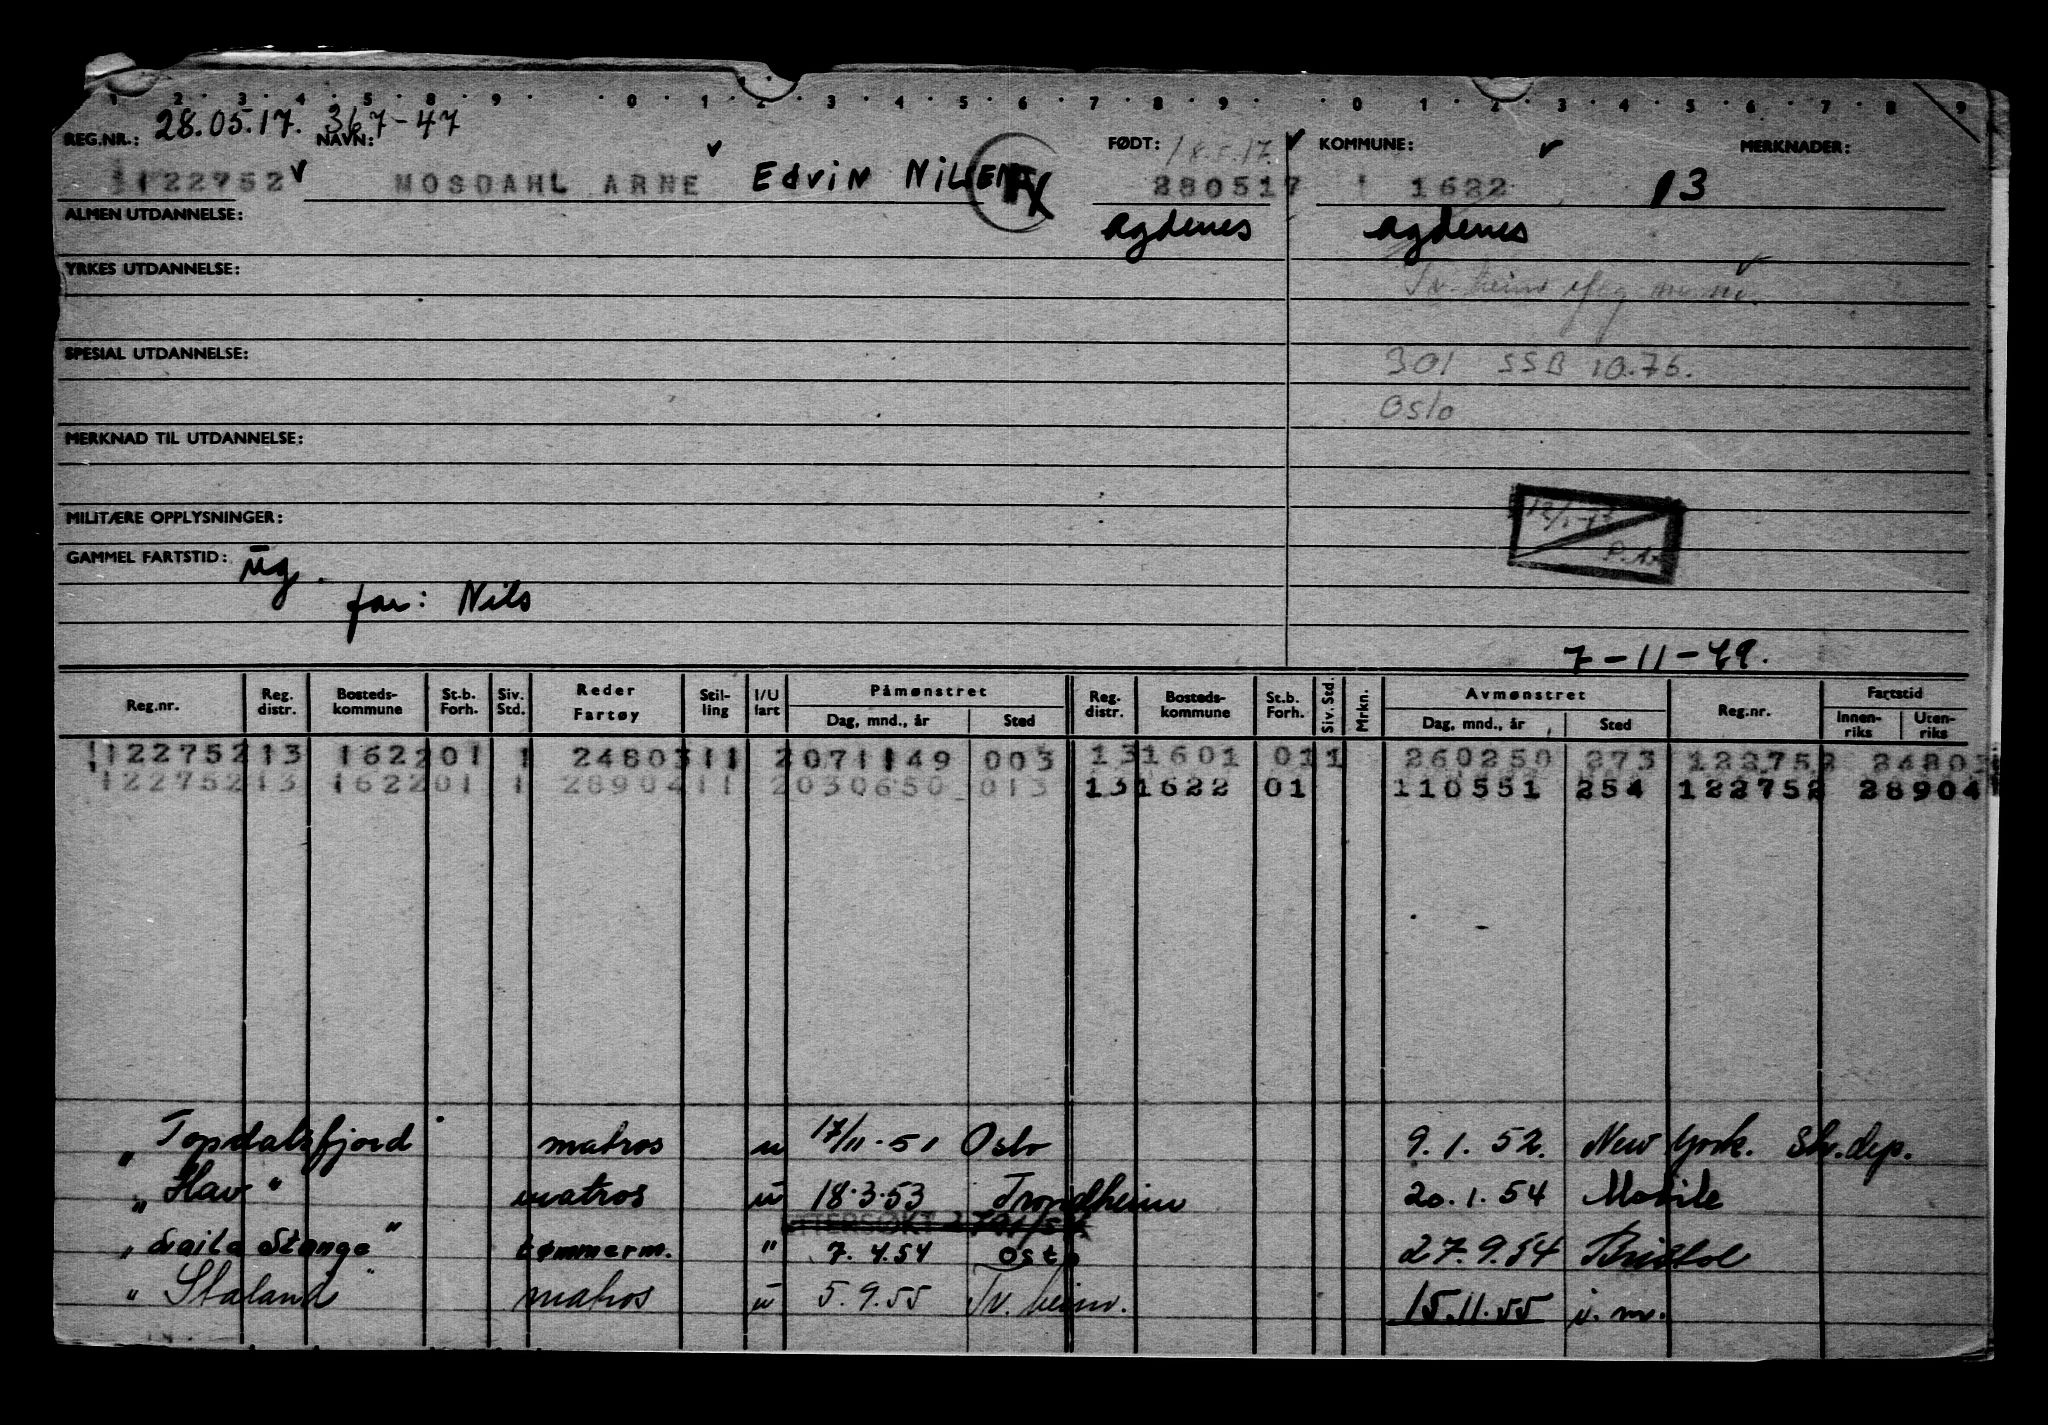 1 2 3 4 5 8 9 0 1 2 3 4 5 6 7 8 9 0 1 2 3 4 5 6 7 8 9
28.05.17. 367-47
REG.NR.: NAVN: FØDT: 18.5.17. KOMMUNE: MERKNADER:
122752 MOSDAHL ARNE Edvin Nilsen 280517 1622 13
ALMEN UTDANNELSE: Agdenes Agdenes
YRKES UTDANNELSE:
SPESIAL UTDANNELSE: 301 SSB 10.76.
Oslo
MERKNAD TIL UTDANNELSE:
MILITÆRE OPPLYSNINGER:
GAMMEL FARTSTID: ug.
far: Nils
7-11-49.
Reg.nr. Reg. distr. Bosteds-kommune St.b. Forh. Siv. Std. Reder Fartøy Stil-ling I/U fart Påmønstret Dag, mnd., år Sted Reg. distr. Bosteds-kommune St.b. Forh. Siv. Std. Mrkn. Avmønstret Dag, mnd., år Sted Reg.nr. Fartstid Innen-riks Uten-riks
122752 13 1622 01 1 24803 11 2 071149 003 13 1601 01 1 260250 273 122752 24803
122752 13 1622 01 1 28904 11 2 030650 013 13 1622 01 110551 254 122752 28904
„ Topdalsfjord " matros u 17/11-51 Oslo 9.1.52. New York. Sk.dep.
„ Hav " matros u 18.3.53 Trondheim 20.1.54 Mobile
„ Laila Stange " tømmerm. " 7.4.54 Oslo 27.9.54 Bristol
" Staland " matros u 5.9.55 Tr.heim. 15.11.55 u.m.